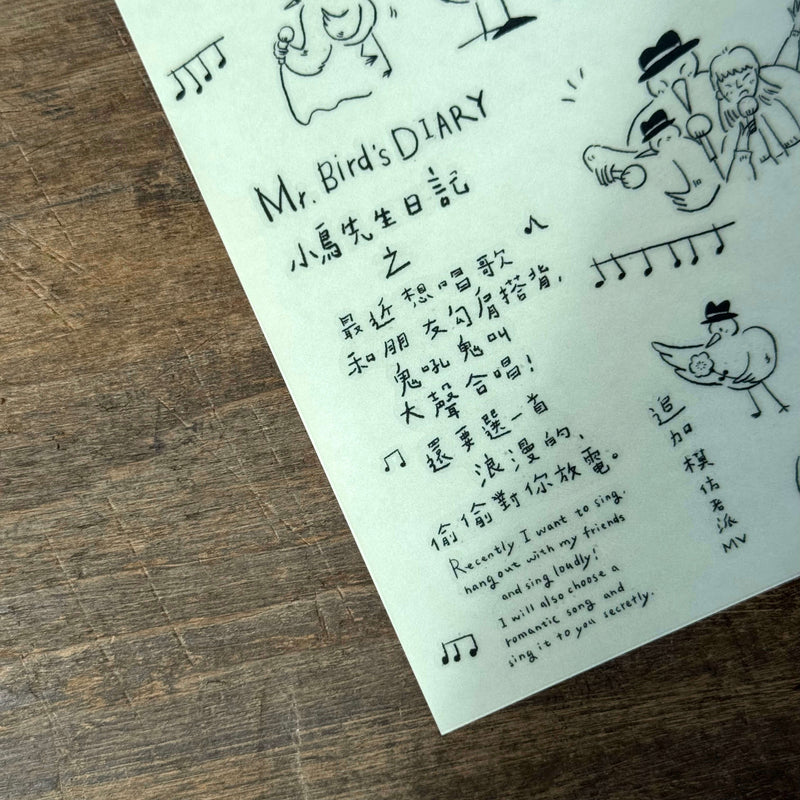 Mr. Bird's DIARY
小鳥先生日記
之
最近想唱歌
和朋友勾肩搭背,
鬼吼鬼叫
大聲合唱!
還要選一首
浪漫的,
偷偷對你放電。
Recently I want to sing.
hang out with my friends
and sing loudly!
I will also choose a
romantic song and
sing it to you secretly.
追加模仿老派MV